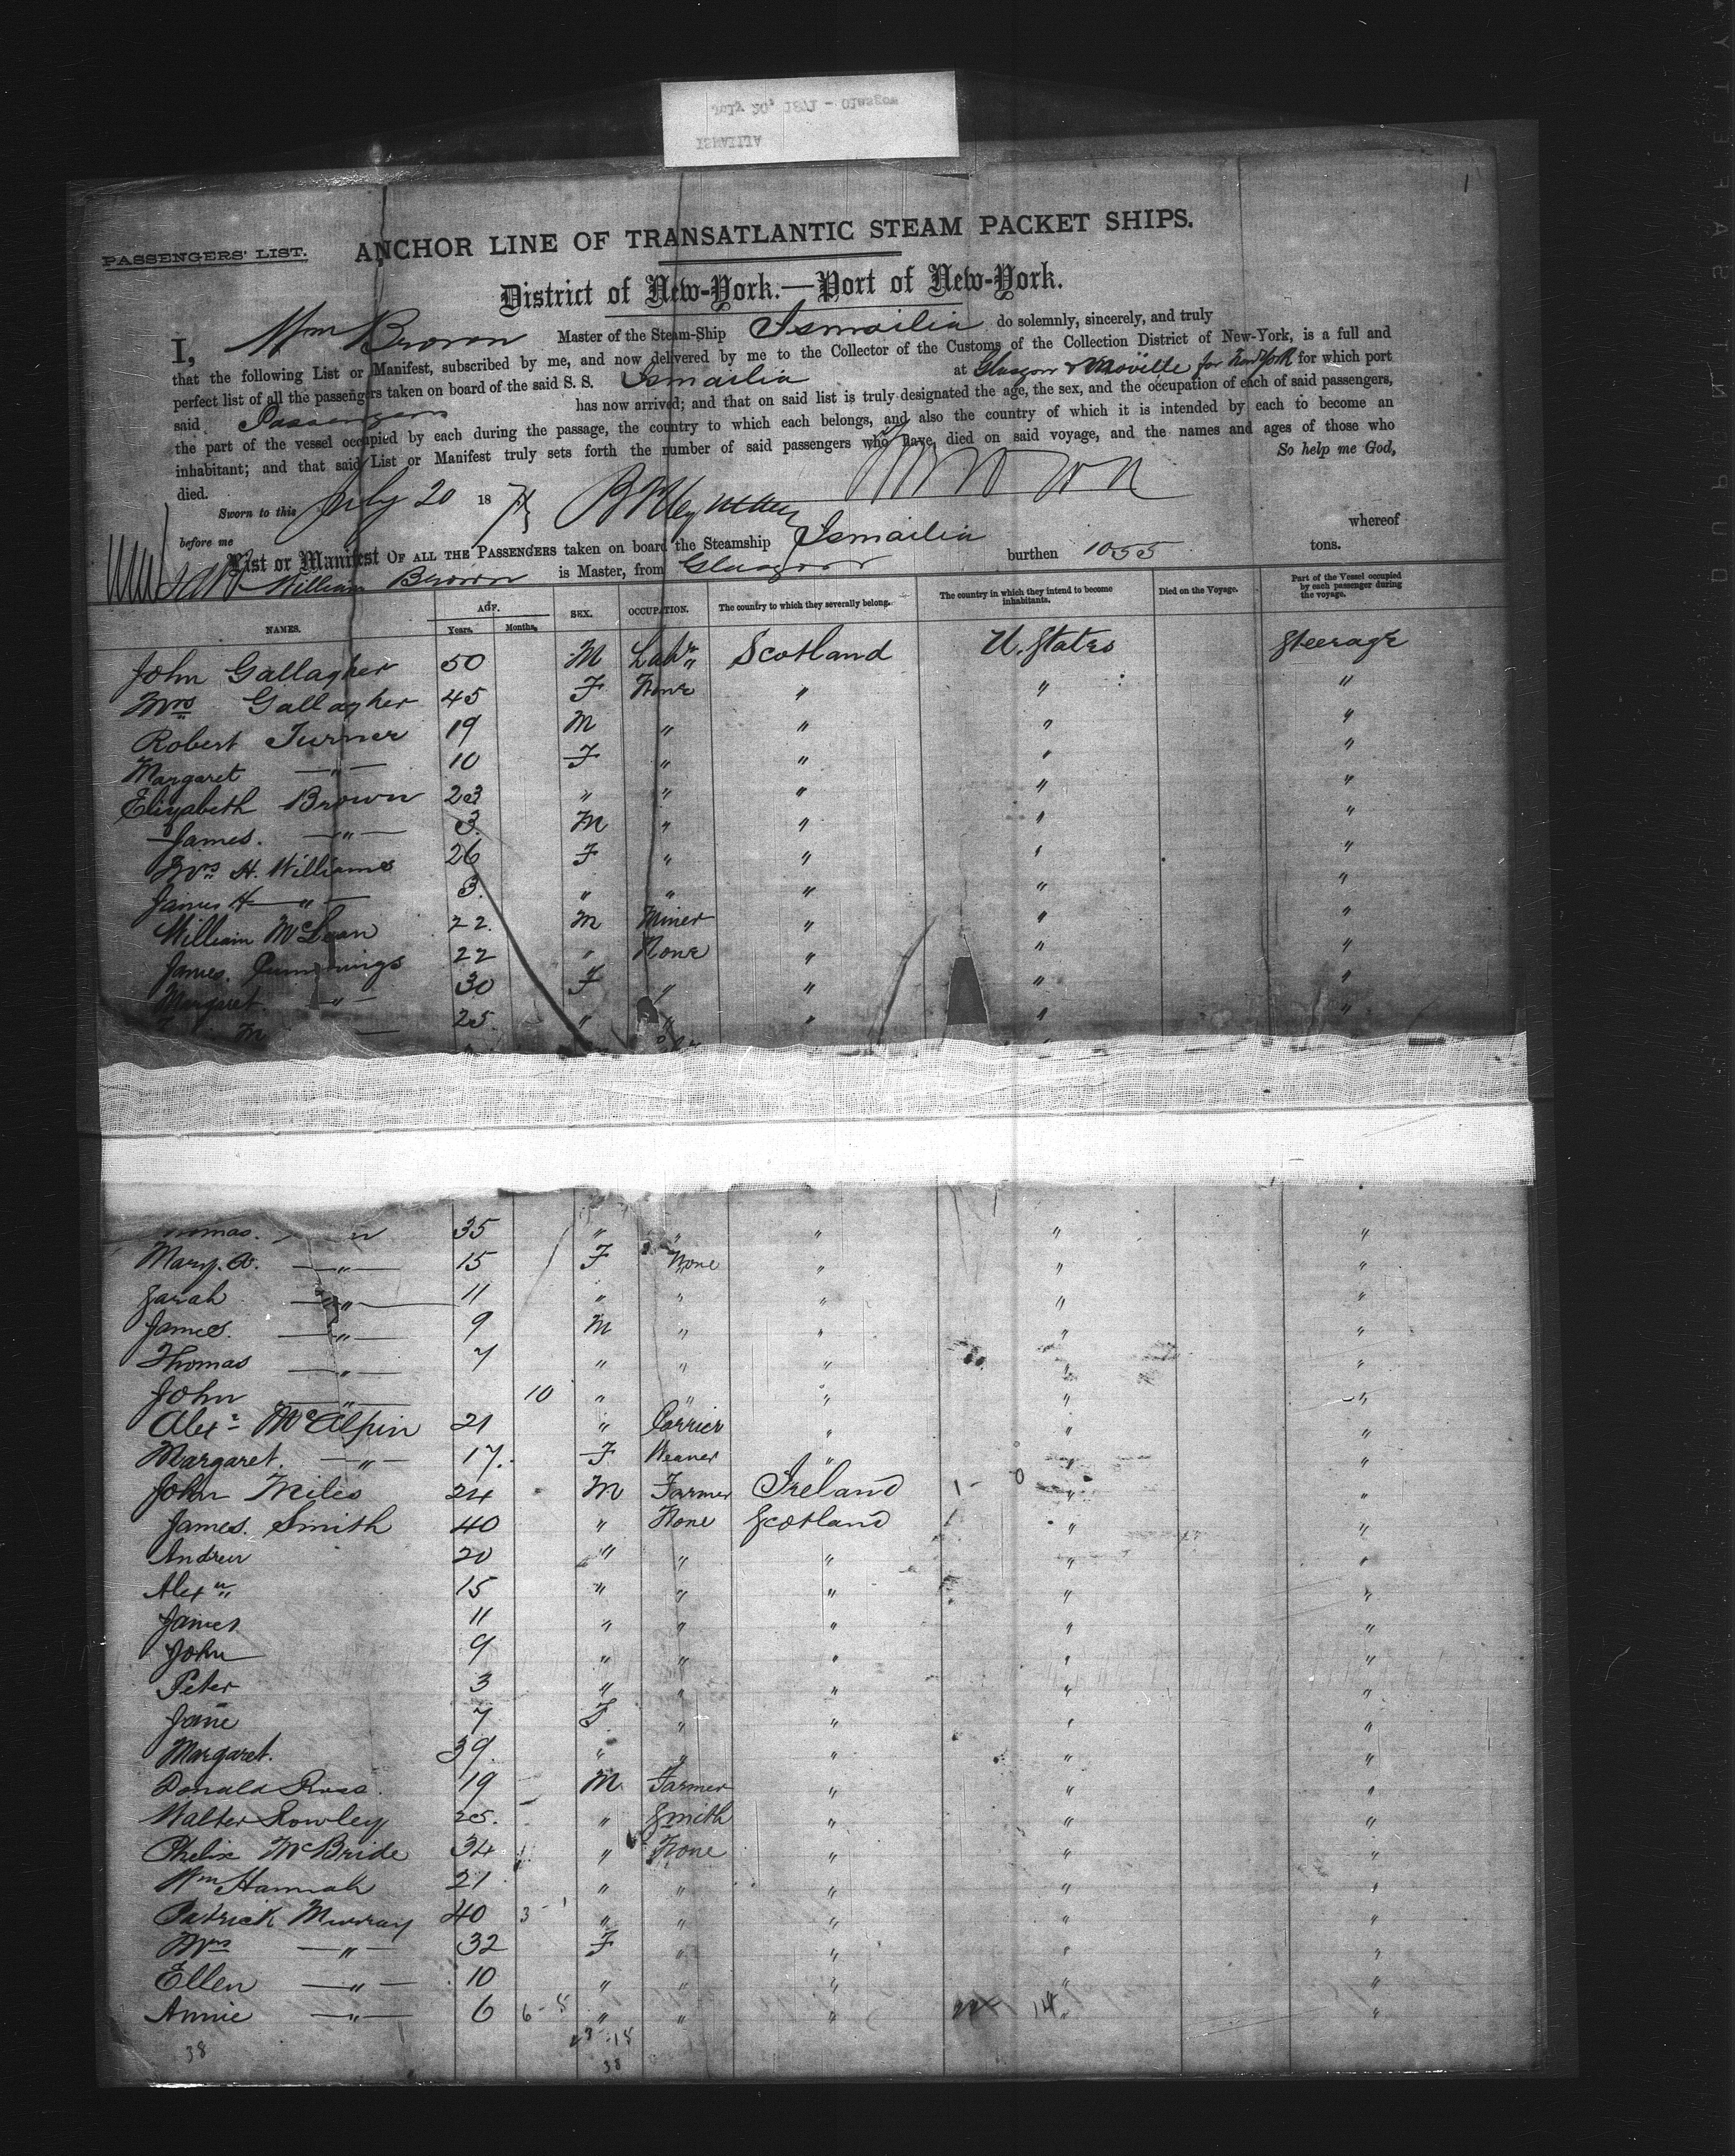 July 20, 1871 - Glasgow
ISMAILIA
1
PASSENGERS' LIST.
ANCHOR LINE OF TRANSATLANTIC STEAM PACKET SHIPS.
District of New-York.—Port of New-York.
I, Wm Brown Master of the Steam-Ship Ismailia do solemnly, sincerely, and truly
that the following List or Manifest, subscribed by me, and now delivered by me to the Collector of the Customs of the Collection District of New-York, is a full and
perfect list of all the passengers taken on board of the said S. S. Ismailia at Glasgow & Moville for New York for which port
said Passengers has now arrived; and that on said list is truly designated the age, the sex, and the occupation of each of said passengers,
the part of the vessel occupied by each during the passage, the country to which each belongs, and also the country of which it is intended by each to become an
inhabitant; and that said List or Manifest truly sets forth the number of said passengers who have died on said voyage, and the names and ages of those who
died. So help me God,
Sworn to this July 20 1871
before me
List or Manifest OF ALL THE PASSENGERS taken on board the Steamship Ismailia whereof
William Brown is Master, from Glasgow burthen 1055 tons.
NAMES. AGE. Years. Months. SEX. OCCUPATION. The country to which they severally belong. The country in which they intend to become inhabitants. Died on the Voyage. Part of the Vessel occupied by each passenger during the voyage.
John Gallagher 50 M Labr Scotland U. States Steerage
Mrs Gallagher 45 F None " " "
Robert Turner 19 M " " " "
Margaret —"— 10 F " " " "
Elizabeth Brown 23 " " " " "
James. —"— 3. M " " " "
Mrs H. Williams 26 F " " " "
James H —"— 3. " " " " "
William McLean 22. M Miner " " "
James. Cummings 22 " None " " "
Margaret. —"— 30 F " " " "
M — 25. " " " " "
homas. " 35 " " " " "
Mary. A. —"— 15 F None " " "
Sarah —"— 11 " " " " "
James. —"— 9 M " " " "
Thomas —"— 7 " " " " "
John —"— 10 " " " " "
Alexr McAlpin 21 " Carrier " " "
Margaret. —"— 17. F Weaver " " "
John Miles 24 M Farmer Ireland " "
James. Smith 40 " None Scotland " "
Andrew 20 " " " " "
Alexr 15 " " " " "
James 11 " " " " "
John 9 " " " " "
Peter 3 " " " " "
Jane 7 F " " " "
Margaret. 39. " " " " "
Donald Ross. 19 M Farmer " " "
Walter Rowley 25. " Smith " " "
Phelix McBride 34 " None " " "
Wm Hannah 21 " " " " "
Patrick Murray 40 3 - 1 " " " " "
Mrs —"— 32 F " " " "
Ellen —"— 10 " " " " "
Annie —"— 6 6 - 5 " " " 14 " "
38 23 - 15
38